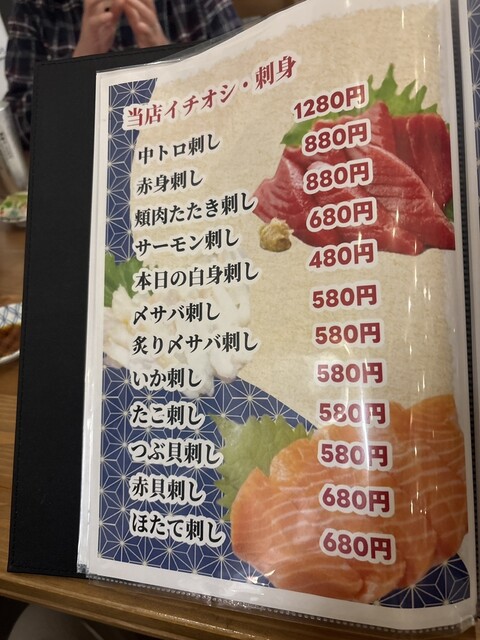 当店イチオシ・刺身
中トロ刺し 1280円
赤身刺し 880円
頬肉たたき刺し 880円
サーモン刺し 680円
本日の白身刺し 480円
〆サバ刺し 580円
炙り〆サバ刺し 580円
いか刺し 580円
たこ刺し 580円
つぶ貝刺し 580円
赤貝刺し 680円
ほたて刺し 680円